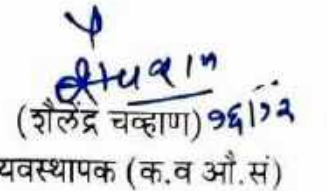 (शैलेंद्र चव्हाण) १६/१२
यवस्थापक (क.व औ.सं)